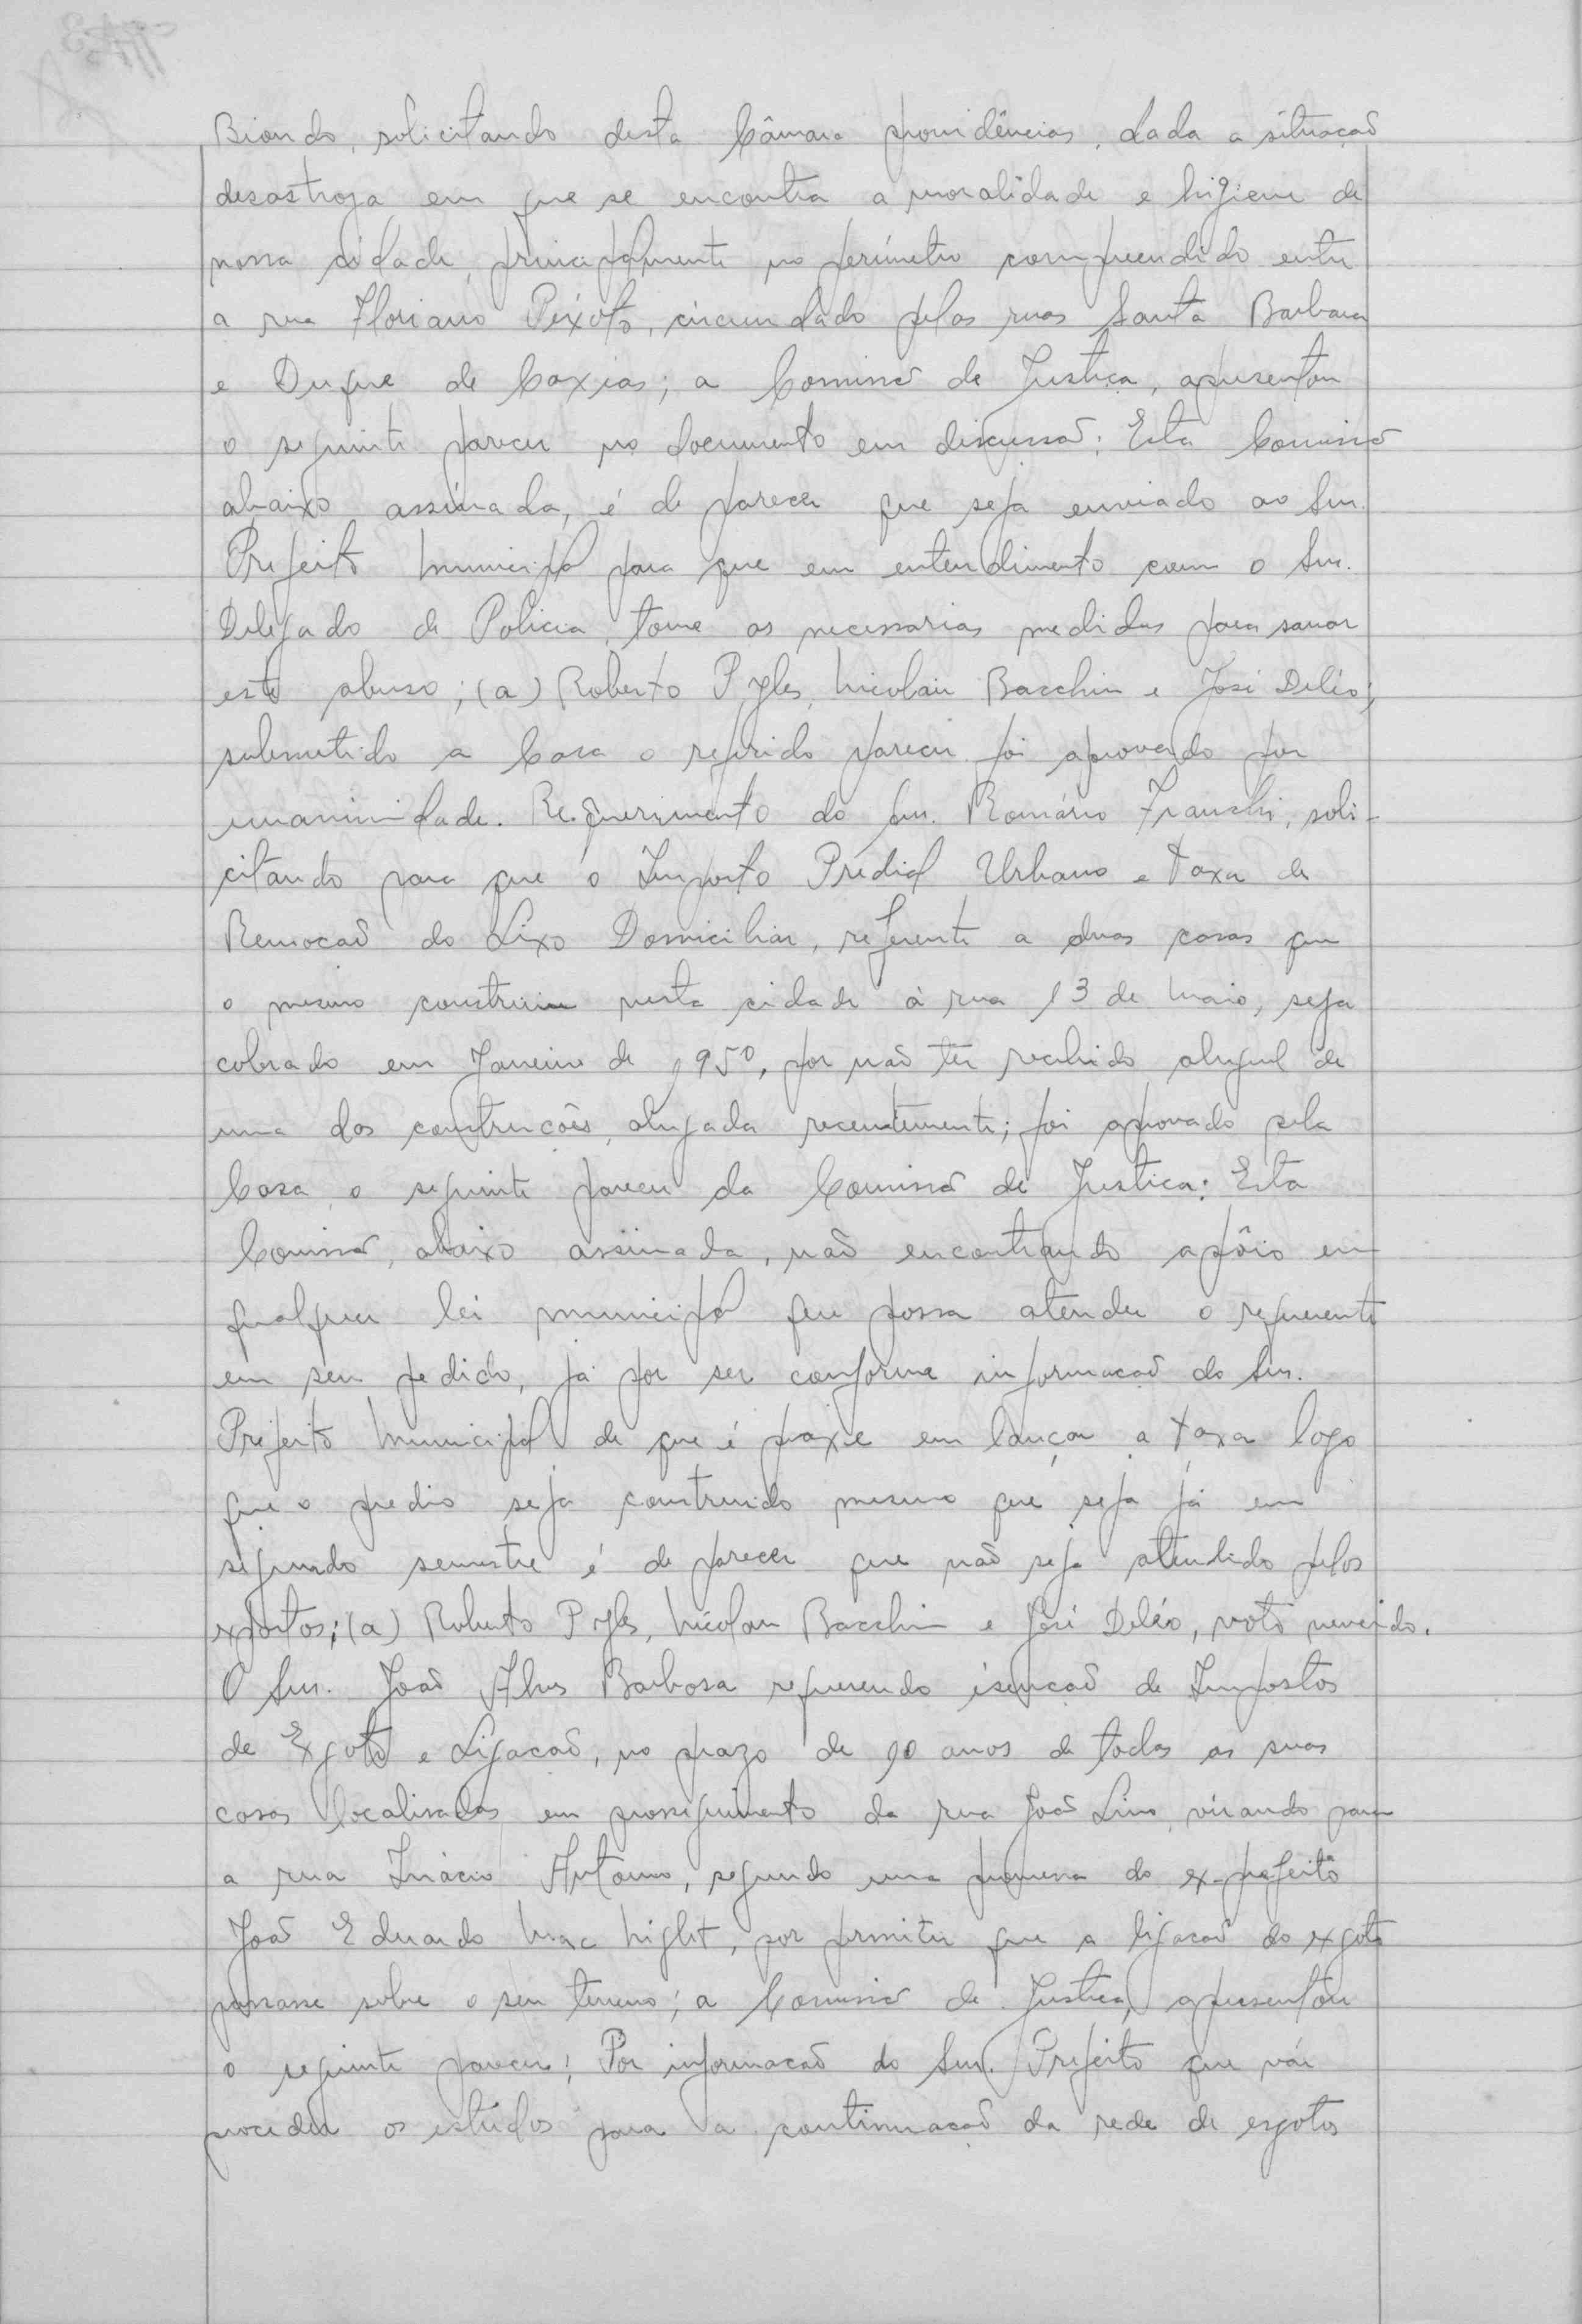 Biondo, solicitando desta Câmara providências, dada a situação
desastroza em que se encontra a moralidade e higiene de
nossa cidade, principalmente no perímetro compreendido entre
a rua Floriano Peixoto, circundado pelas ruas Santa Barbara
e Duque de Caxias; a Comissão de Justiça, apresentou
o seguinte parecer no documento em discussão: Esta Comissão
abaixo assinada, é de parecer que seja enviado ao Snr.
Prefeito Municipal para que em entendimento com o Snr.
Delegado de Policia, tome as necessarias medidas para sanar
este abuso; (a) Roberto Pyles, Nicolau Bacchin e José Deléo;
submetido a Casa o referido parecer foi aprovado por
unanimidade. Requerimento do Snr. Romário Franchi, soli-
citando para que o Imposto Predial Urbano e taxa de
Remoção do Lixo Domiciliar, referente a duas casas que
o mesmo construiu nesta cidade à rua 13 de Maio, seja
cobrado em Janeiro de 1950, por não ter recebido aluguel de
uma das construcões, alugada recentemente; foi aprovado pela
Casa o seguinte parecer da Comissão de Justica: Esta
Comissão, abaixo assinada, não encontrando apôio em
qualquer lei municipal que possa atender o requerente
em seu pedido, já por ser conforme informacão do Snr.
Prefeito Municipal de que é praxe em lançar a taxa logo
que o predio seja construido mesmo que seja já em
segundo semestre é de parecer que não seja atendido pelos
expostos; (a) Roberto Pyles, Nicolau Bacchin e José Deléo, voto vencido.
O Snr. João Alves Barbosa requerendo isenção de Impostos
de Exgoto e Ligacão, no prazo de 10 anos de todas as suas
casas localisadas em prosseguimento da rua João Lino, virando para
a rua Inácio Antonio, segundo uma promessa do ex-prefeito
João Eduardo Mac Night, por permitir que a ligacão do exgoto
passasse sobre o seu terreno; a Comissão de Justica, apresentou
o seguinte parecer: Por informacão do Snr. Prefeito que vái
proceder os estudos para a continuacão da rede de esgotos